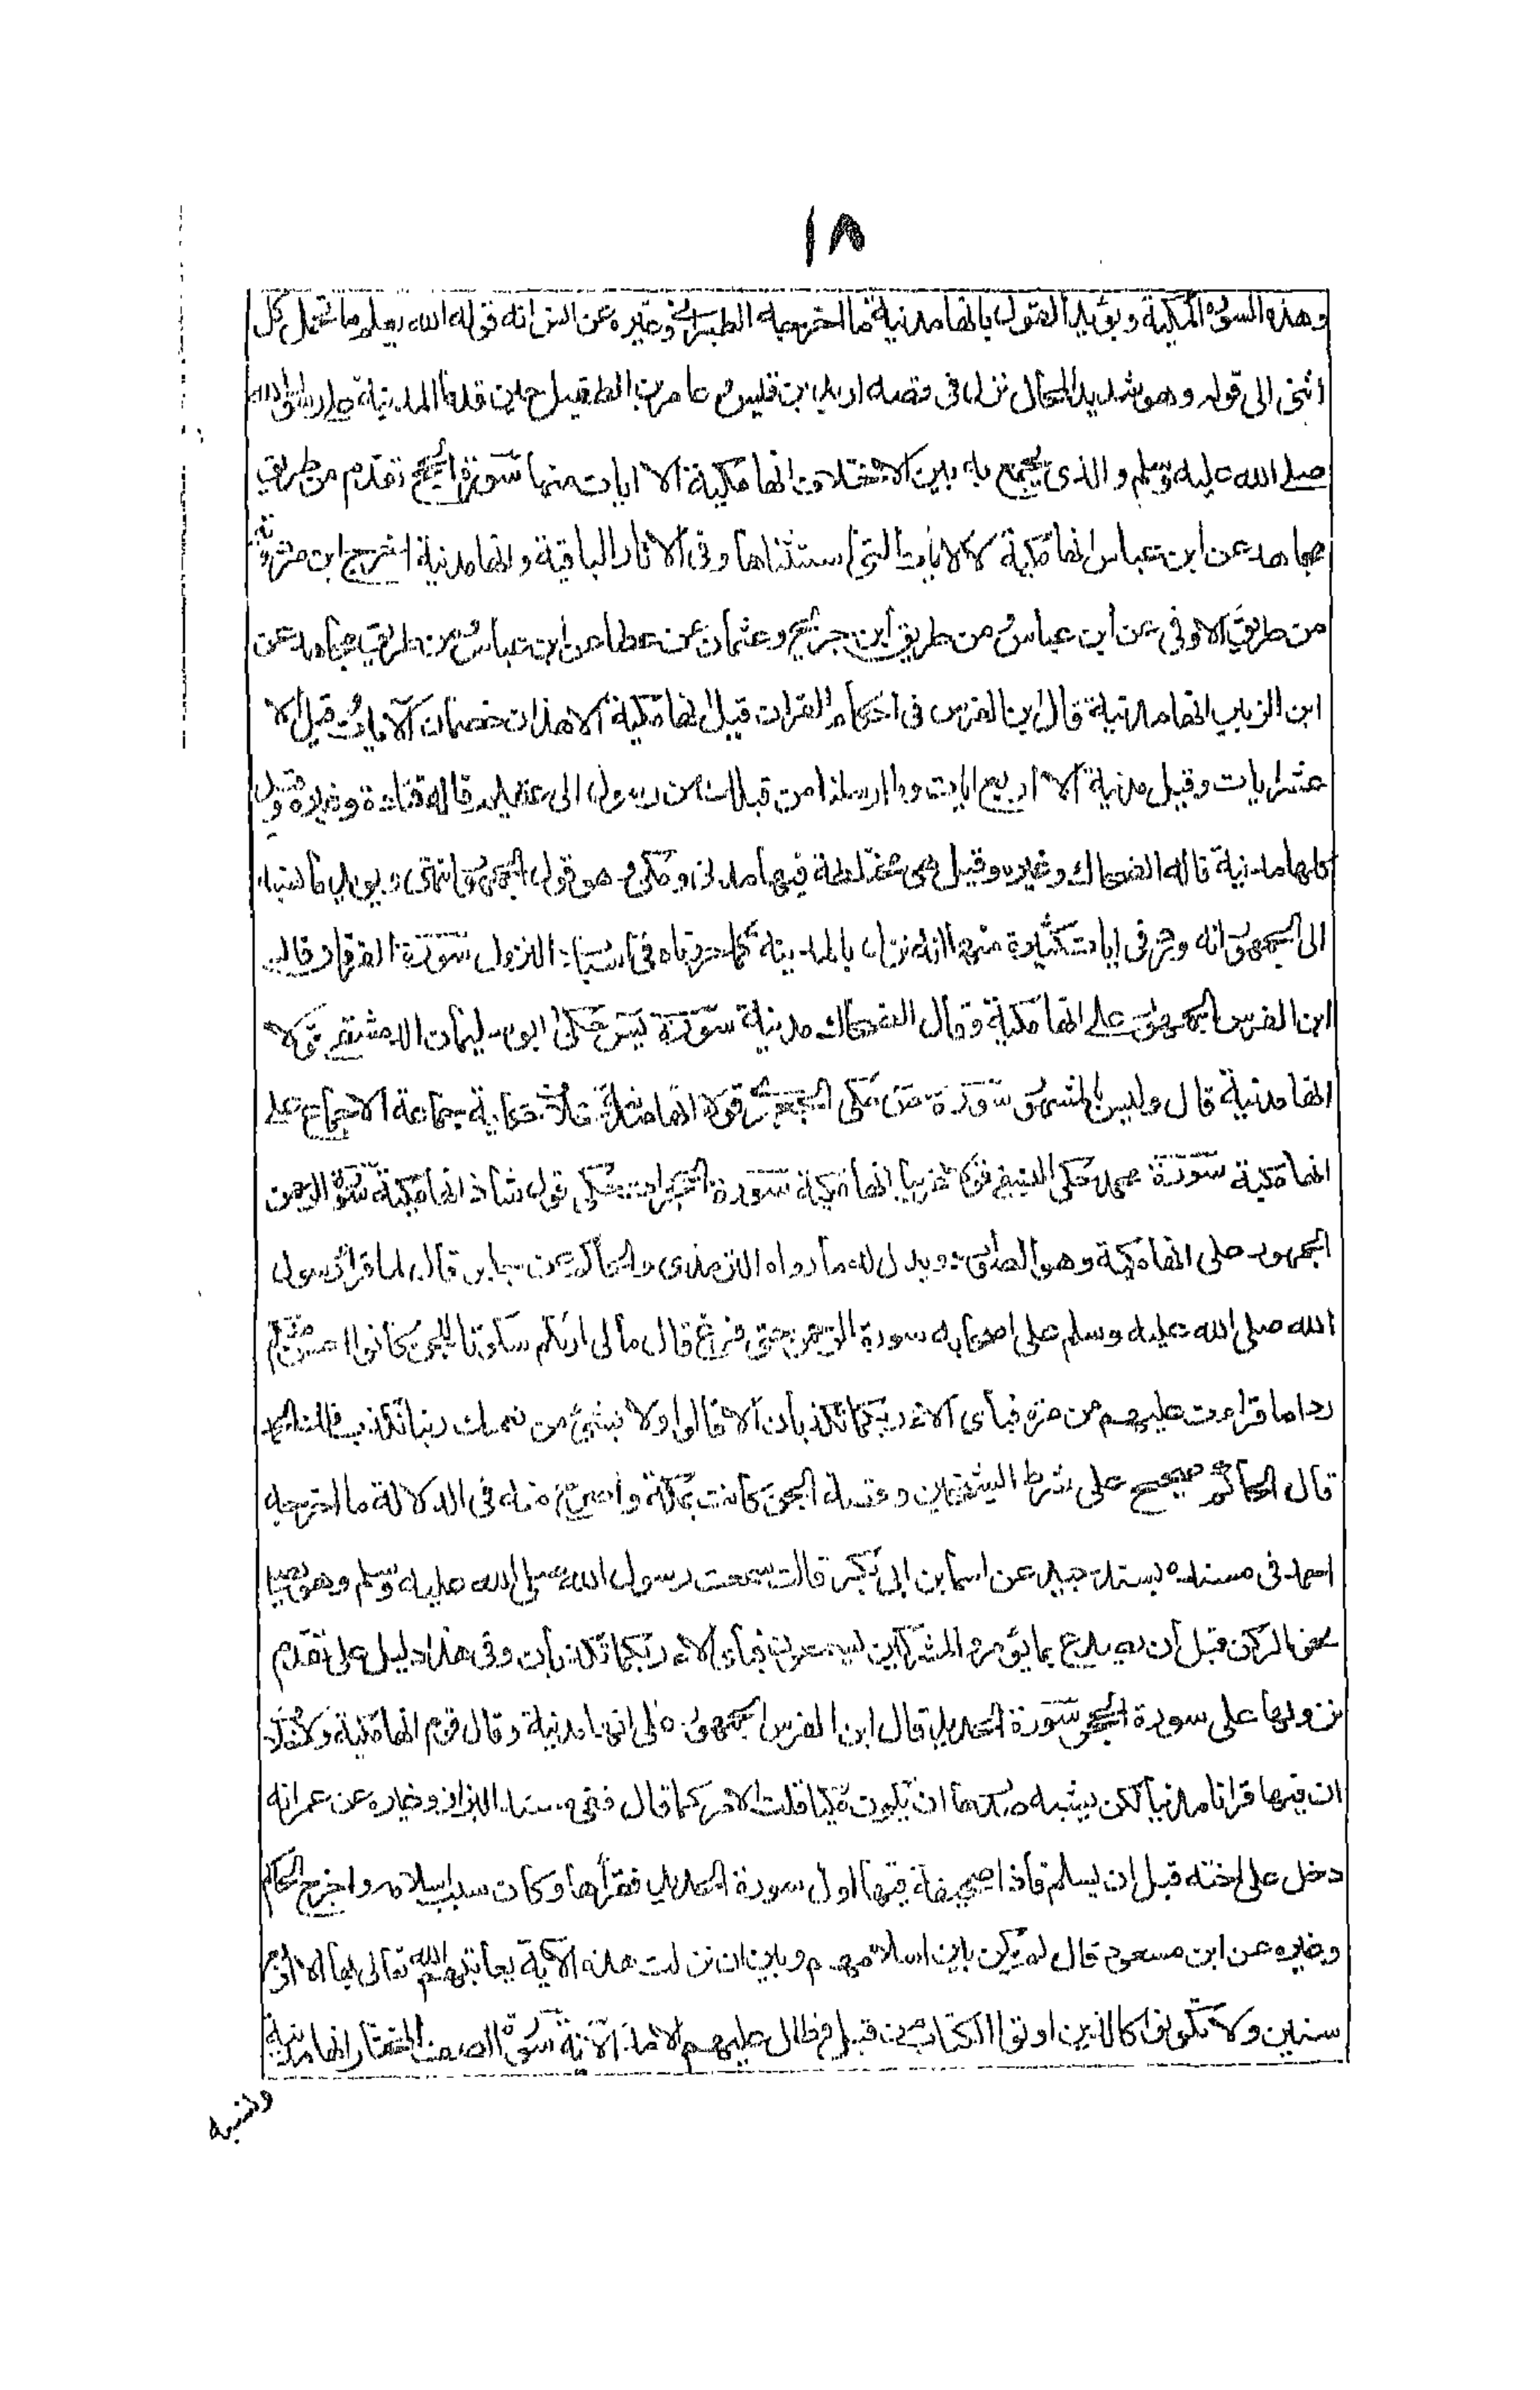 ١٨
وهذه السورة مكية ويؤيد القول بانها مدنية ما اخرجه الطبراني وغيره عن انس انه قوله الله يعلم ما تحمل كل
انثى الى قوله وهو شديد المحال نزل في قصه اربد بن قيس و عامر بن الطفيل حين قدما المدينة على رسول الله
صلى الله عليه وسلم والذي يجمع به بين الاختلاف انها مكية الا ايات منها سورة الحج تقدم من طريق
مجاهد عن ابن عباس انها مكية الا الايات التي استثناها وفي الاثار الباقية وانها مدنية اخرج ابن مردويه
من طريق العوفى عن ابن عباس ومن طريق ابن جريج وعثمان عن عطا عن ابن عباس ومن طريق مجاهد عن
ابن الزبير انها مدنية قال ابن الفرس في احكام القران قيل انها مكية الا هذان خصمان الايات وقيل الا
عشر ايات وقيل مدنية الا اربع ايات وما ارسلنا من قبلك من رسول الى عقيم قاله قتادة وغيره وقيل
كلها مدنية قاله الضحاك وغيره وقيل هي مختلطة فيها مدنى ومكى وهو قول الجمهور انتهى ويؤيد ما نسبه
الى الجمهور انه ورد في ايات كثيرة منها انه نزل بالمدينة كما حررناه في اسباب النزول سورة الفرقان قال
ابن الفرس الجمهور على انها مكية وقال الضحاك مدنية سورة يس حكى ابو سليمان الدمشقي قولا
انها مدنية قال وليس بالمشهور سورة ص حكى الجعبري قولا انها مدنية خلاف حكاية جماعة الاجماع على
انها مكية سورة محمد حكى النسفي قولا غريبا انها مكية سورة الحجرات حكى قول شاذ انها مكية سورة الرحمن
الجمهور على انها مكية وهو الصواب ويدل له ما رواه الترمذى والحاكم عن جابر قال لما قرأ رسول
الله صلى الله عليه وسلم على اصحابه سورة الرحمن حتى فرغ قال ما لى اراكم سكوتا للجن كانوا احسن منكم
ردا ما قرات عليهم من مرة فباى الاء ربكما تكذبان الا قالوا ولا بشئ من نعمك ربنا نكذب فلك الحمد
قال الحاكم صحيح على شرط الشيخين وقصة الجن كانت بمكة واصرح منه في الدلالة ما اخرجه
احمد في مسنده بسند جيد عن اسما بن ابى بكر قالت سمعت رسول الله صلى الله عليه وسلم وهو يصلى
نحو الركن قبل ان يصدع بما يؤمر والمشركين يسمعون فباى الاء ربكما تكذبان وفى هذا دليل على تقدم
نزولها على سورة الحجر سورة الحديد قال ابن الفرس الجمهور على انها مدنية وقال قوم انها مكية ولا خلاف
ان فيها قرانا مدنيا لكن يشبه صدرها ان يكون مكيا قلت الامر كما قال ففى مسند البزار وغيره عن عمر انه
دخل على اخته قبل ان يسلم فاذا صحيفة فيها اول سورة الحديد فقرأها وكان سبب اسلامه واخرج الحاكم
وغيره عن ابن مسعود قال لم يكن بين اسلامهم وبين ان نزلت هذه الآية يعاتبهم الله تعالى بها الا اربع
سنين ولا تكونوا كالذين اوتوا الكتاب من قبل فطال عليهم الامد الآية سورة الصف المختار انها مدنية
ونسبه